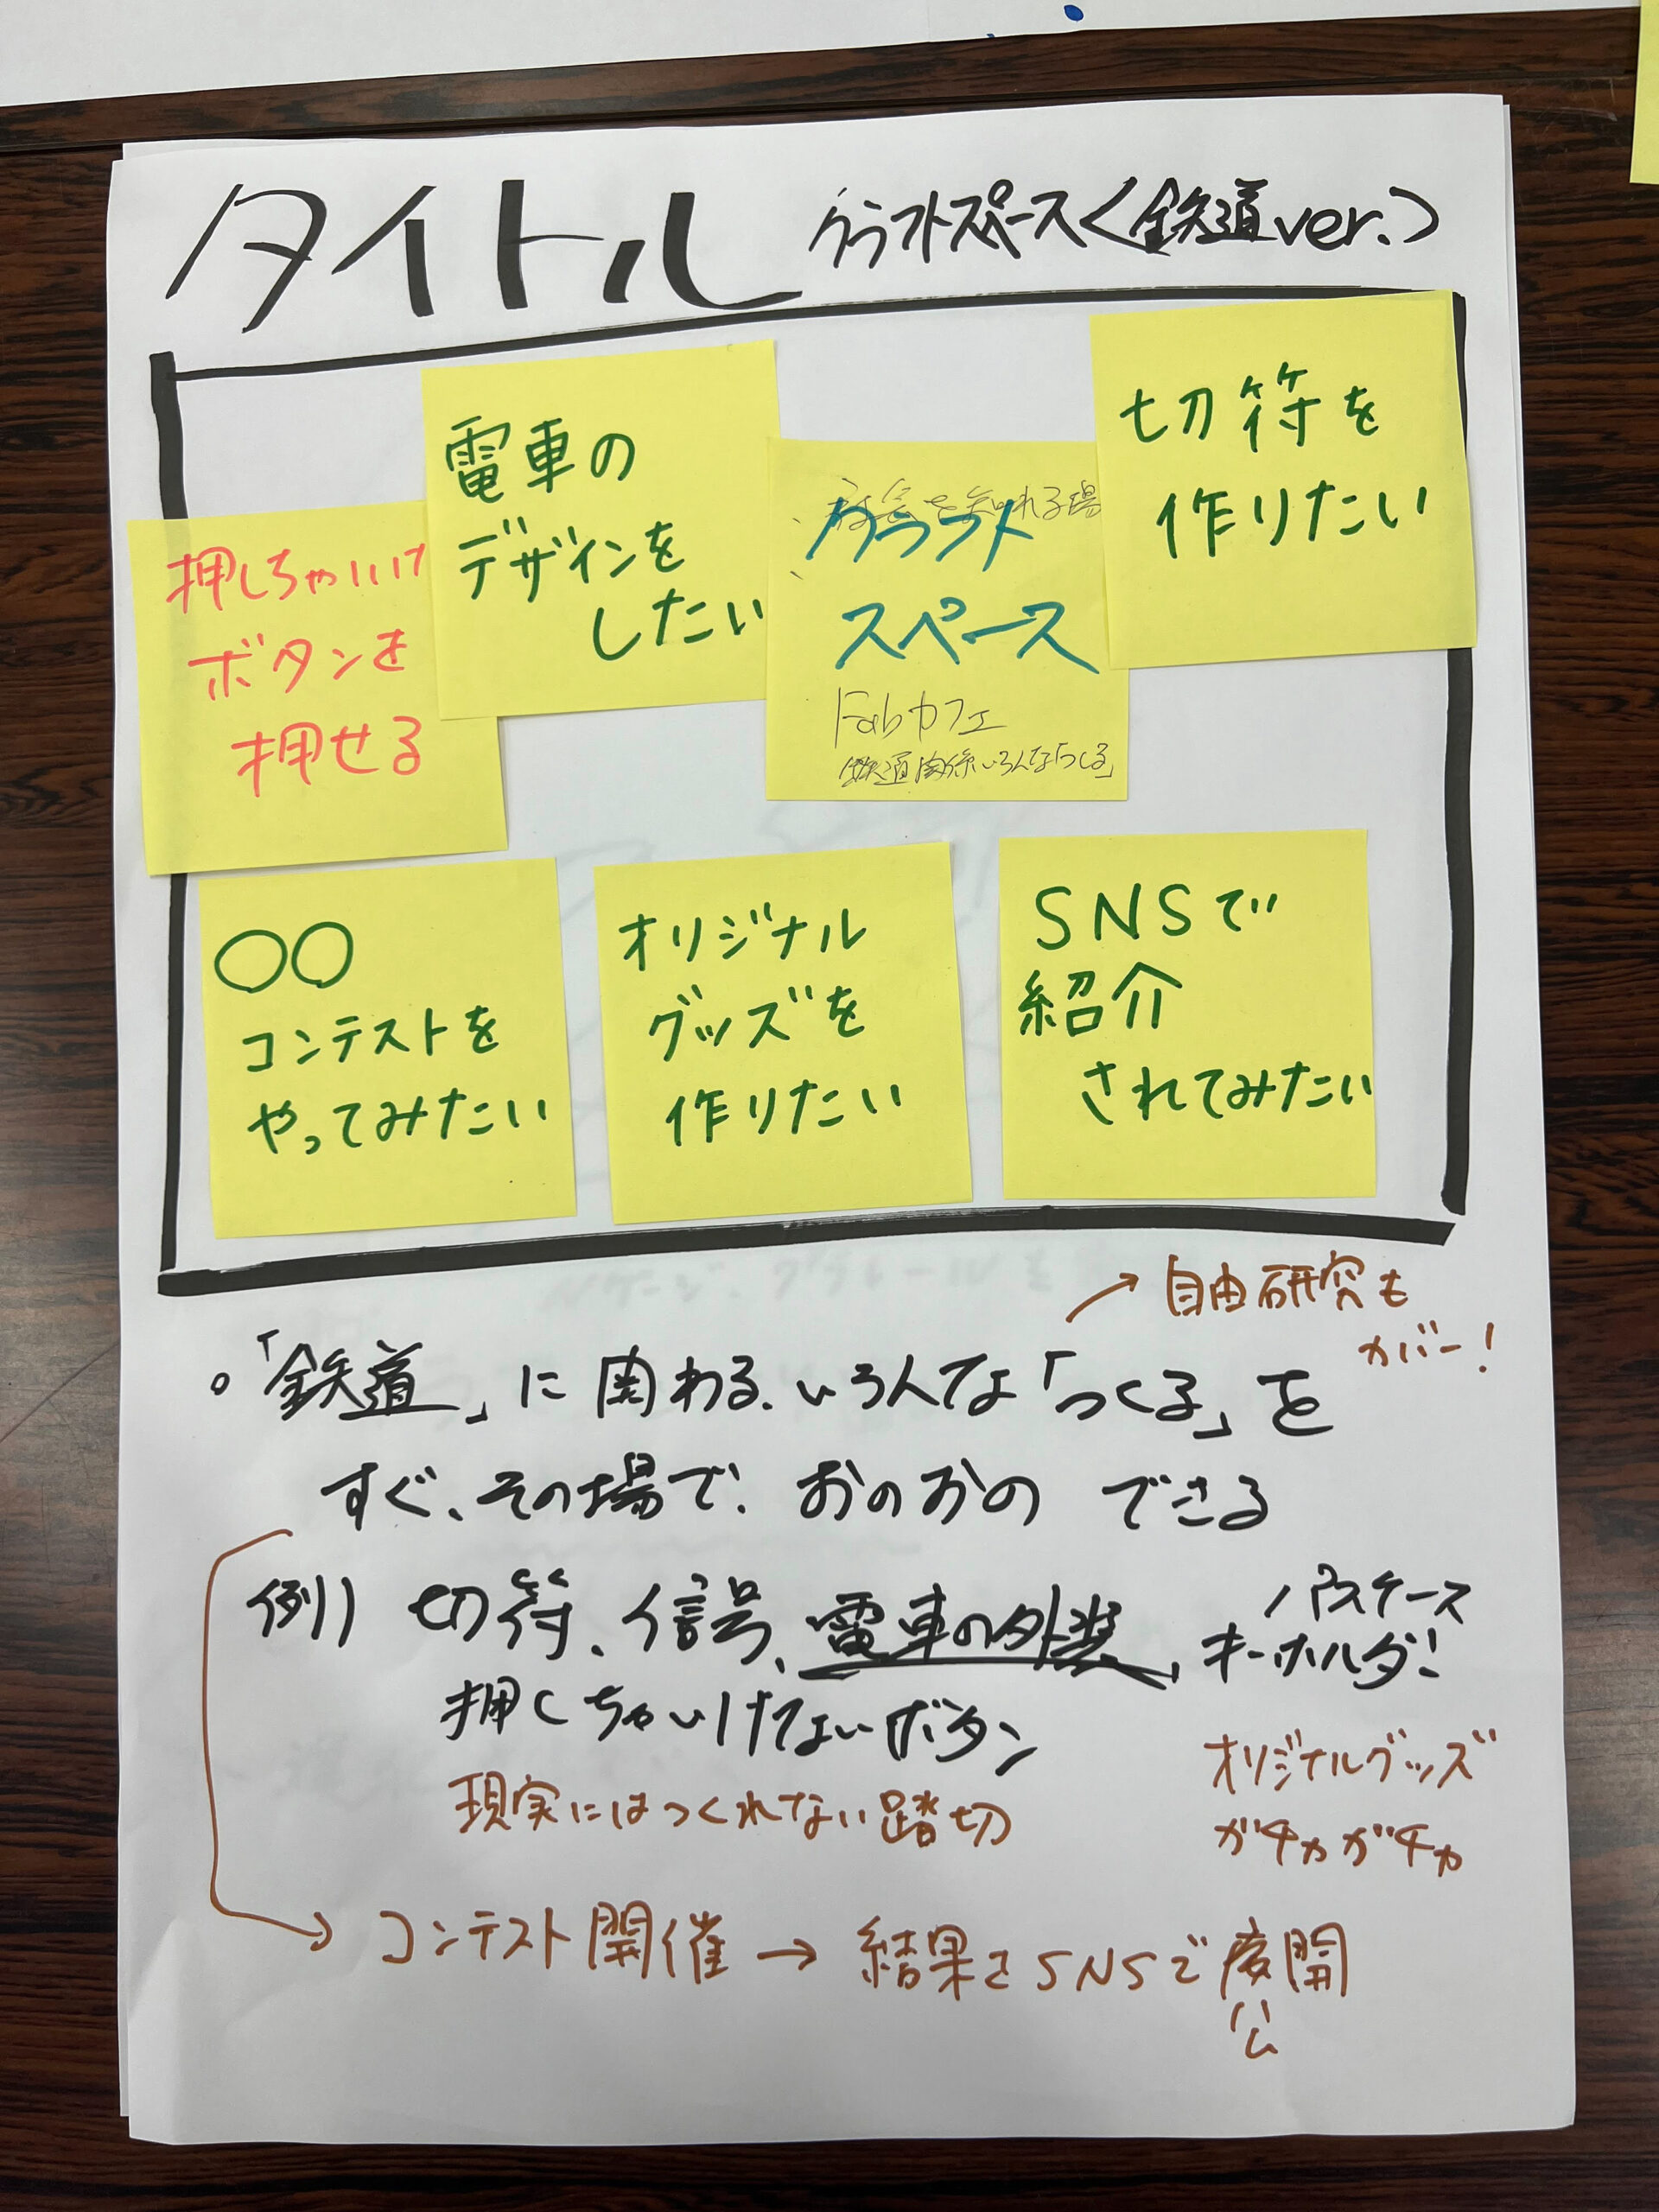 タイトル クラフトスペース〈鉄道ver.〉
押しちゃいけ
ボタンを
押せる
電車の
デザインを
したい
社会を知れる場
クラフト
スペース
Fabカフェ
鉄道関係いろんな「つくる」
切符を
作りたい
○○
コンテストを
やってみたい
オリジナル
グッズを
作りたい
SNSで
紹介
されてみたい
→自由研究も
カバー!
。「鉄道」に関わる、いろんな「つくる」を
すぐ、その場で、おのおの できる
例) 切符、信号、電車の外装、
パスケース
キーホルダー
押しちゃいけないボタン
現実にはつくれない踏切
オリジナルグッズ
ガチャガチャ
→コンテスト開催→結果をSNSで 開
公